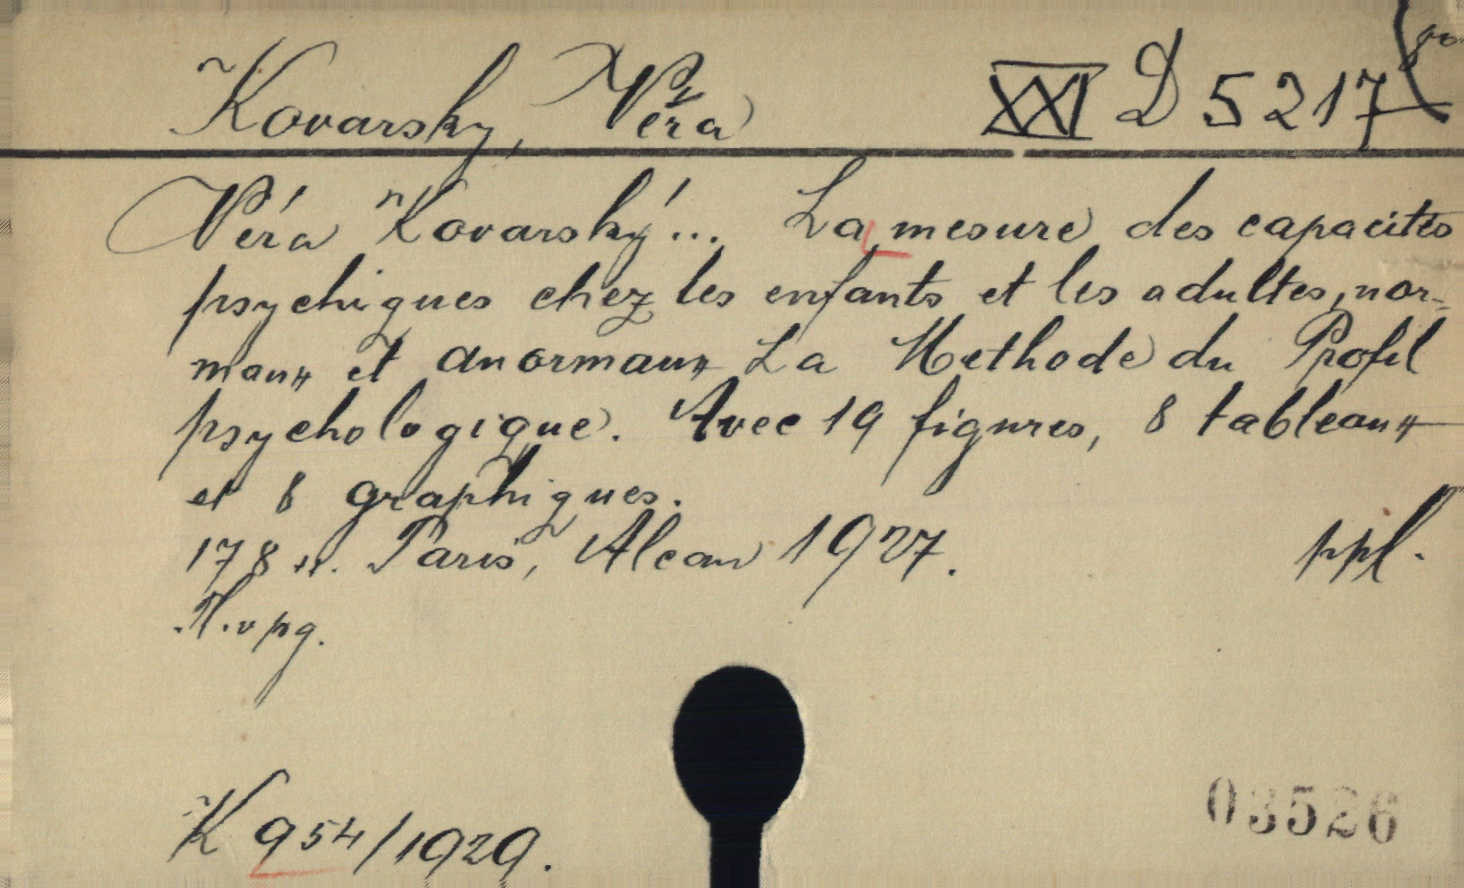 Kovarsky, Véra XXI D 5217
Véra Kovarsky... La mesure des capacités
psychiques chez les enfants et les adultes, nor-
maux et anormaux La Methode du Profil
psychologique. Avec 19 figures, 8 tableaux
et 8 graphiques.
178 Paris, Alcan 1927. ppl.
K 954/1929.
03526